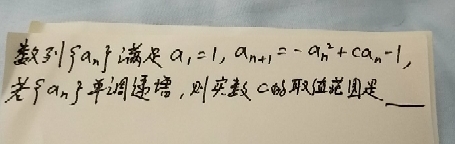 数列{aₙ}满足 a₁=1, aₙ₊₁=-aₙ²+caₙ-1,
若{aₙ}单调递增,则实数c的取值范围是___